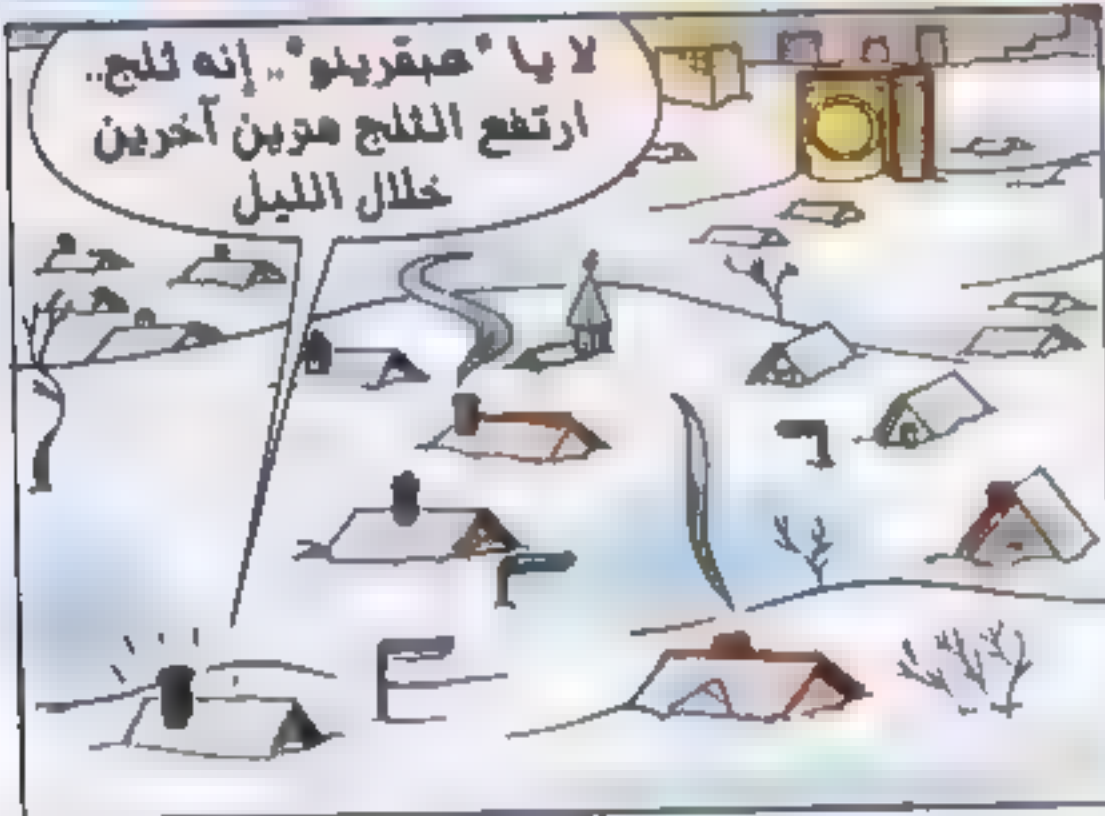 لا يا "عبقرينو".. إنه ثلج..
ارتفع الثلج مرين آخرين
خلال الليل